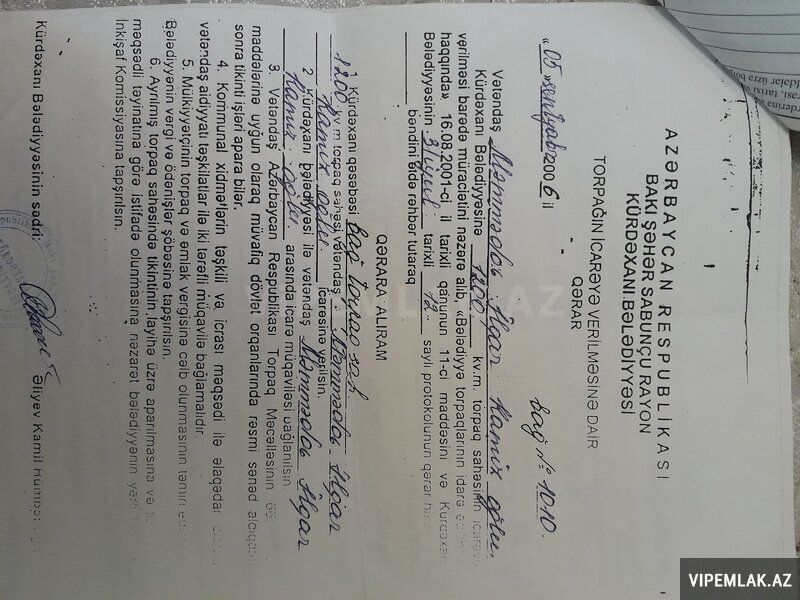 AZƏRBAYCAN RESPUBLİKASI
BAKI ŞƏHƏR SABUNÇU RAYON
KÜRDƏXANI BƏLƏDİYYƏSİ
TORPAĞIN İCARƏYƏ VERİLMƏSİNƏ DAİR
QƏRAR
«05» sentyabr 2006 il
bağ № 1010.
Vətəndaş Məmmədov İlqar Kamix oğlu
Kürdəxanı Bələdiyyəsinə 1200 kv.m. torpaq sahəsinin icarəyə
verilməsi barədə müraciətini nəzərə alıb, «Bələdiyyə torpaqlarının idarə
haqqında» 16.08.2001-ci il tarixli qanunun 11-ci maddəsini və Kürdəxanı
Bələdiyyəsinin 31 iyul tarixli 12 saylı protokolunun qərar
bəndini əldə rəhbər tutaraq
QƏRARA ALIRAM
1. Kürdəxanı qəsəbəsi bağ torpaq sah.
1200 kv.m torpaq sahəsi vətəndaş Məmmədov İlqar
Kamix oğlu icarəsinə verilsin.
2 Kürdəxanı bələdiyyəsi ilə vətəndaş Məmmədov İlqar
Kamix oğlu arasında icarə müqaviləsi bağlanılsın.
3. Vətəndaş Azərbaycan Respublikası Torpaq Məcəlləsinin
maddələrinə uyğun olaraq müvafiq dövlət orqanlarında rəsmi sənəd
sonra tikinti işləri apara bilər.
4. Kommunal xidmətlərin təşkili və icrası məqsədi ilə əlaqədar
vətəndaş aidiyyatı təşkilatlar ilə iki tərəfli müqavilə bağlamalıdır.
5. Mülkiyyətçinin torpaq və əmlak vergisinə cəlb olunmasının təmin
Bələdiyyənin vergi və ödənişlər şöbəsinə tapşırılsın.
6. Ayrılmış torpaq sahəsində tikintinin layihə üzrə aparılmasına və
məqsədli təyinatına görə istifadə olunmasına nəzarət bələdiyyənin
İnkişaf Komissiyasına tapşırılsın.
Kürdəxanı Bələdiyyəsinin sədri Əliyev Kamil Hümbət
VIPEMLAK.AZ
VIPEMLAK.AZ